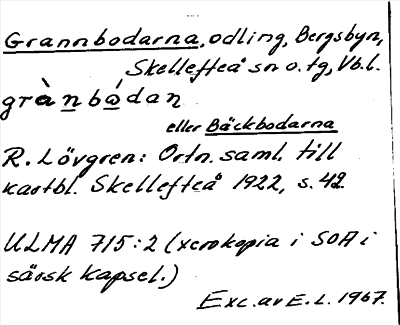 Grannbodarna, odling, Bergsbyn,
Skellefteå sn o. tg, Vb.l.
grànbó̀dan
eller Bäckbodarna
R. Lövgren: Ortn. saml. till
kartbl. Skellefteå 1922, s. 42.
ULMA 715:2 (xerokopia i SOA i
särsk kapsel.)
Exc. av E. L. 1967.